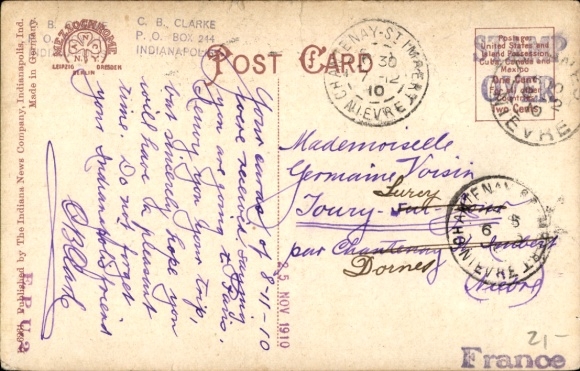 C. B. CLARKE
P. O. BOX 244
INDIANAPOLIS
B.
O.
INDIA
MEZZOCHROME
LEIPZIG DRESDEN
BERLIN
POST CARD
Postage:
United States and
Island Possession
Cuba, Canada and
Mexico
One Cent
For all other
Countries
Two Cents
STAMP
CHANTENAY-ST IMBERT
30
7-12
10
NIEVRE
Published by The Indiana News Company, Indianapolis, Ind.
Made in Germany.
Yours card of 8-11-10
have received. Saying
you are going to Paris.
I envy you your trip,
but sincerely hope you
will have a pleasant
time. Do not forget
your Indianapolis friend
CBClarke
25 NOV 1910
Mademoiselle
Germaine Voisin
Lurcy
Toury-sur-Jour
par Chantenay St Imbert
Dornes
(Nièvre)
CHANTENAY-ST IMBERT
6
NIEVRE
France
21-